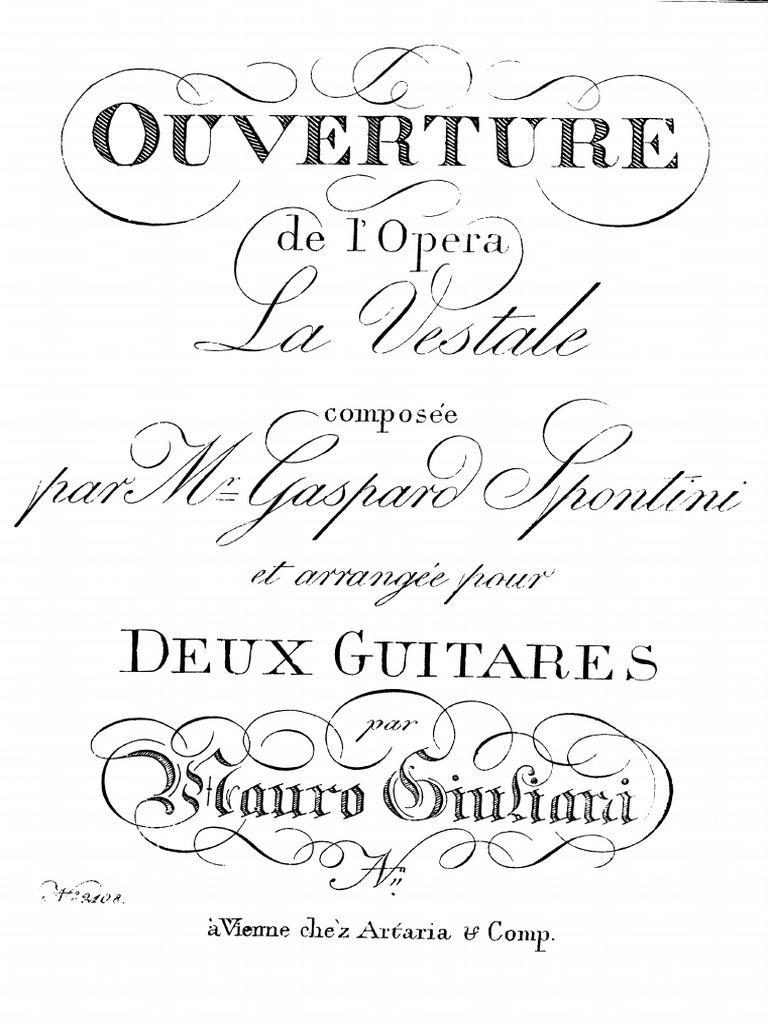 OUVERTURE
de l'Opera
La Vestale
composée
par Mr. Gaspard Spontini
et arrangée pour
DEUX GUITARES
par
Mauro Giuliani
No.
No. 2108.
à Vienne chèz Artaria & Comp.